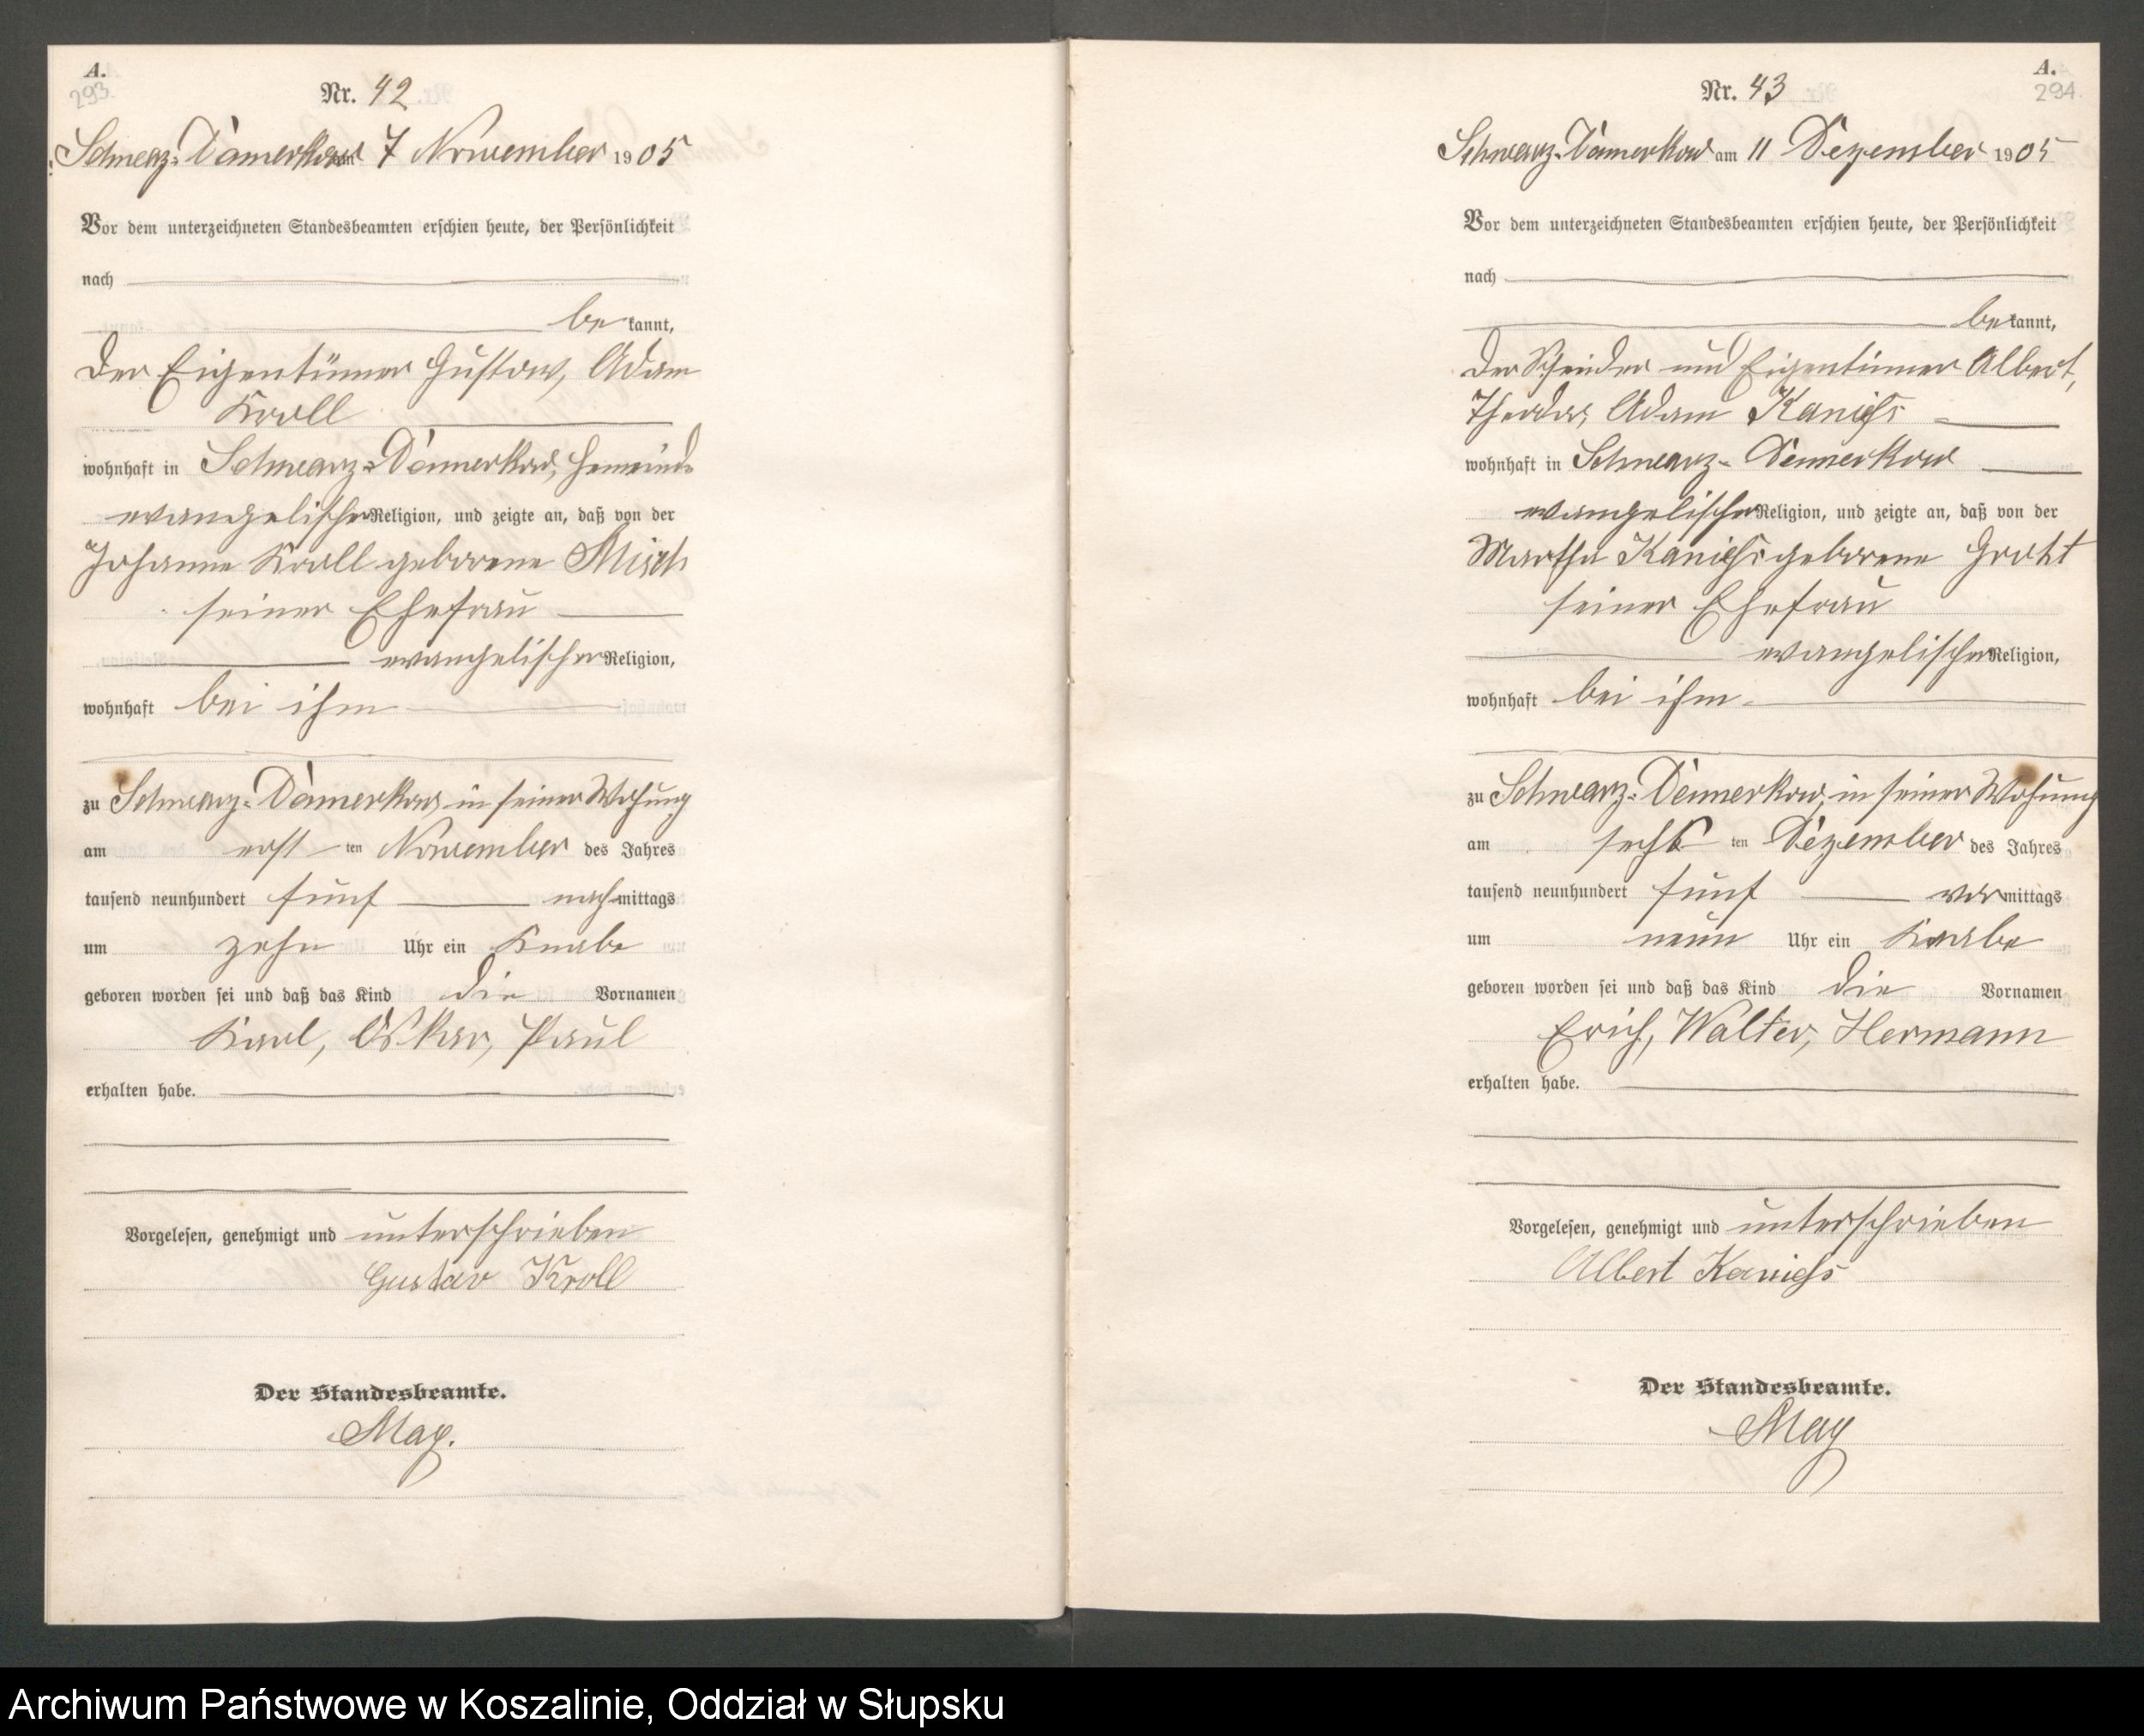 A.
293.
Nr. 42
Schwarz-Damerkow am 7 November 1905
Vor dem unterzeichneten Standesbeamten erschien heute, der Persönlichkeit
nach
bekannt,
der Eigentümer Gustav, Adam
Kroll
wohnhaft in Schwarz-Damerkow, Gemeinde
evangelischer Religion, und zeigte an, daß von der
Johanne Kroll geborene
seiner Ehefrau
evangelischer Religion,
wohnhaft bei ihm
zu Schwarz-Damerkow, in seiner Wohung
am ersten November des Jahres
tausend neunhundert fünf nachmittags
um zehn Uhr ein Knabe
geboren worden sei und daß das Kind die Vornamen
Karl, Oskar, Paul
erhalten habe.
Vorgelesen, genehmigt und unterschrieben
Gustav Kroll
Der Standesbeamte.
May.
A.
294.
Nr. 43
Schwarz-Damerkow am 11 Dezember 1905
Vor dem unterzeichneten Standesbeamten erschien heute, der Persönlichkeit
nach
bekannt,
der und Eigentümer Albert,
Theodor, Adam Kaniess
wohnhaft in Schwarz-Damerkow
evangelischer Religion, und zeigte an, daß von der
Martha Kaniess geborene Groht
seiner Ehefrau
evangelischer Religion,
wohnhaft bei ihm
zu Schwarz-Damerkow, in seiner Wohung
am sechsten Dezember des Jahres
tausend neunhundert fünf vormittags
um neun Uhr ein Knabe
geboren worden sei und daß das Kind die Vornamen
Erich, Walter, Hermann
erhalten habe.
Vorgelesen, genehmigt und unterschrieben
Albert Kaniess
Der Standesbeamte.
May
Archiwum Państwowe w Koszalinie, Oddział w Słupsku